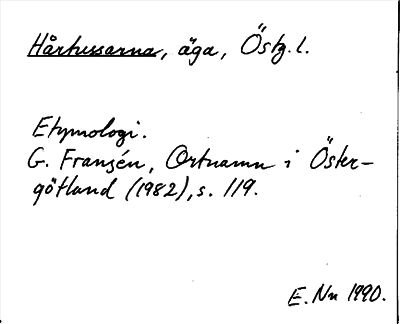 Hårtussarna, äga, Östg. l.
Etymologi.
G. Franzén, Ortnamn i Öster-
götland (1982), s. 119.
E. Nn 1990.